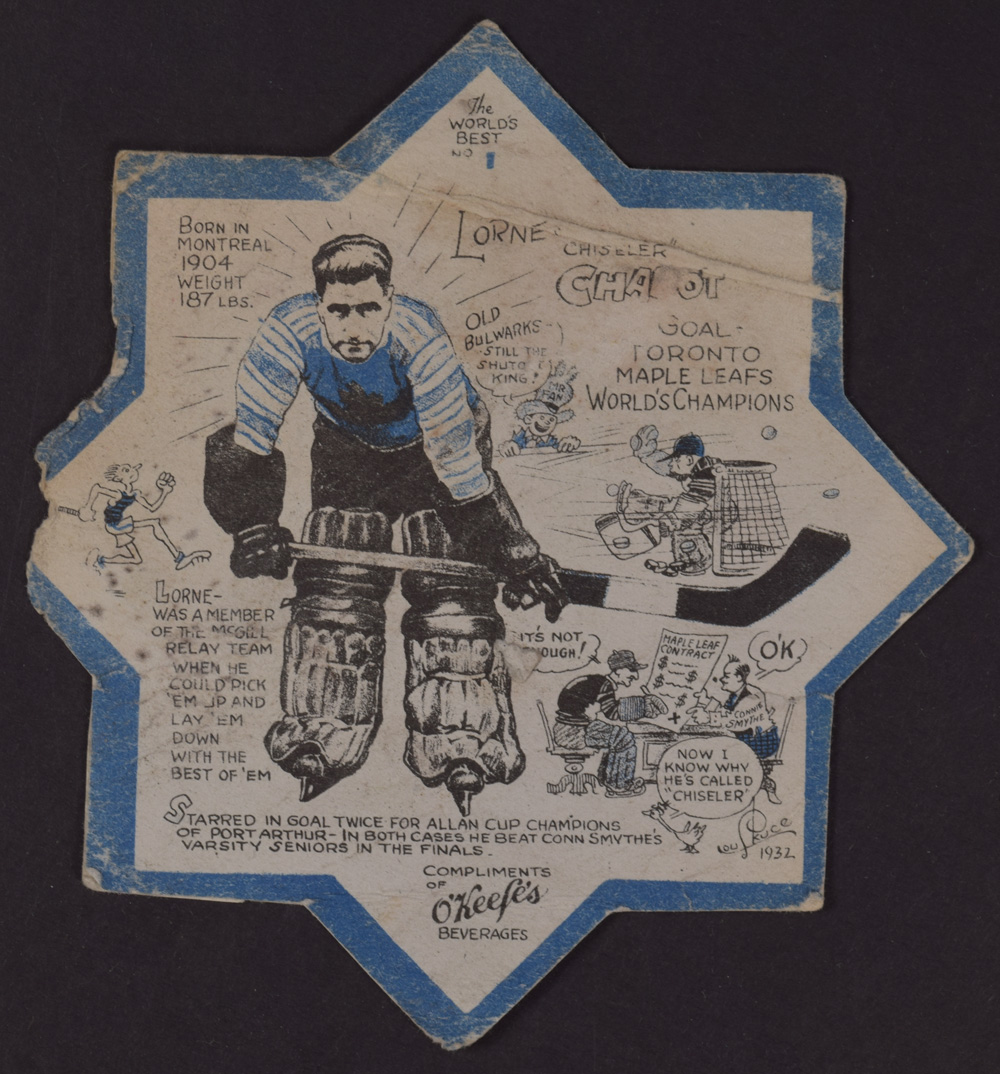 The
WORLD'S
BEST
NO 1
BORN IN
MONTREAL
1904
WEIGHT
187 LBS.
LORNE "CHISELER"
CHA OT
GOAL-
TORONTO
MAPLE LEAFS
WORLD'S CHAMPIONS
OLD
BULWARKS-
STILL THE
KING!
MR
FAN
LORNE-
WAS A MEMBER
OF THE McGILL
RELAY TEAM
WHEN HE
COULD PICK
'EM UP AND
LAY 'EM
DOWN
WITH THE
BEST OF 'EM
IT'S NOT
OUGH!
MAPLE LEAF
CONTRACT
$
$
$ $
X
O'K
CONNIE
SMYTHE
NOW I
KNOW WHY
HE'S CALLED
"CHISELER"
STARRED IN GOAL TWICE FOR ALLAN CUP CHAMPIONS
OF PORT ARTHUR - IN BOTH CASES HE BEAT CONN SMYTHE'S
VARSITY SENIORS IN THE FINALS.
LOU SKUCE
1932
COMPLIMENTS
OF
O'Keefe's
BEVERAGES